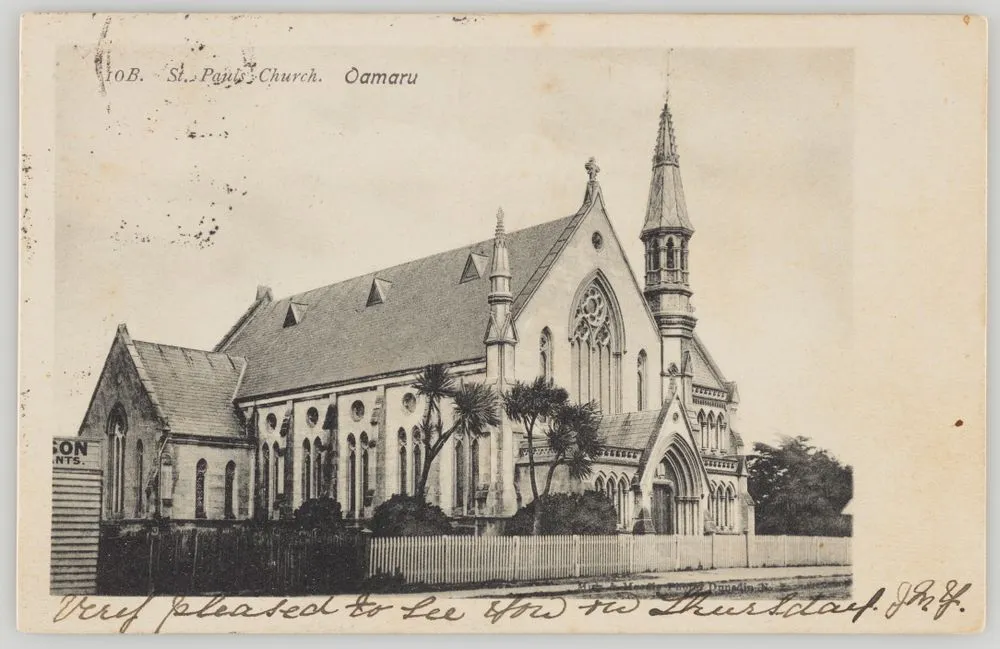 10B. St. Paul's Church. Oamaru
SON
NTS.
Dunedin, N.
Very pleased to see you on Thursday. J.M.Y.